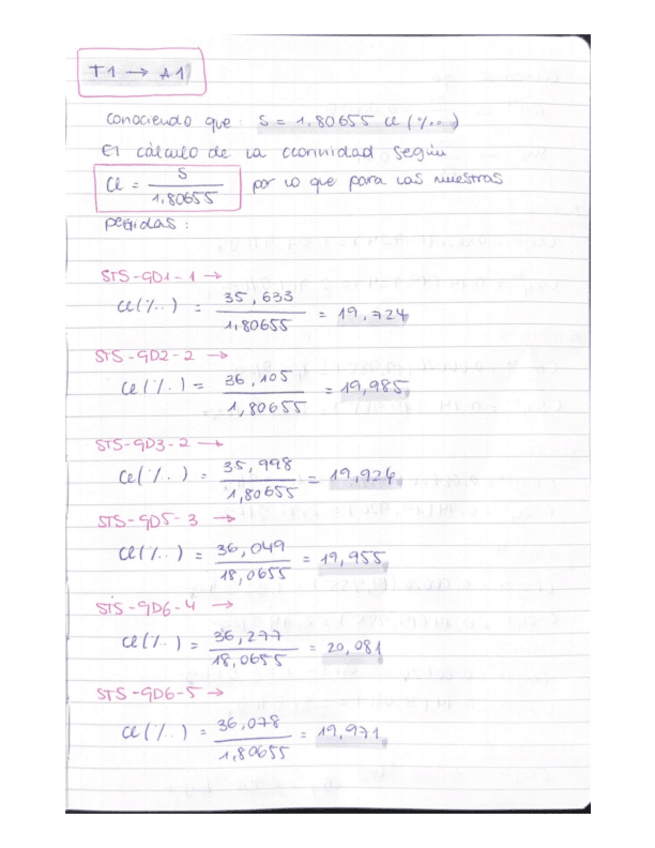 T1 → A1
Conociendo que: S = 1,80655 Cl (‰)
El cálculo de la clorinidad según
Cl = S / 1,80655 por lo que para las muestras
pedidas:
STS-GD1-1 →
Cl(‰) = 35,633 / 1,80655 = 19,724
STS-GD2-2 →
Cl(‰) = 36,105 / 1,80655 = 19,985
STS-GD3-2 →
Cl(‰) = 35,998 / 1,80655 = 19,926
STS-GD5-3 →
Cl(‰) = 36,049 / 18,0655 = 19,955
STS-GD6-4 →
Cl(‰) = 36,277 / 18,0655 = 20,081
STS-GD6-5 →
Cl(‰) = 36,078 / 1,80655 = 19,971